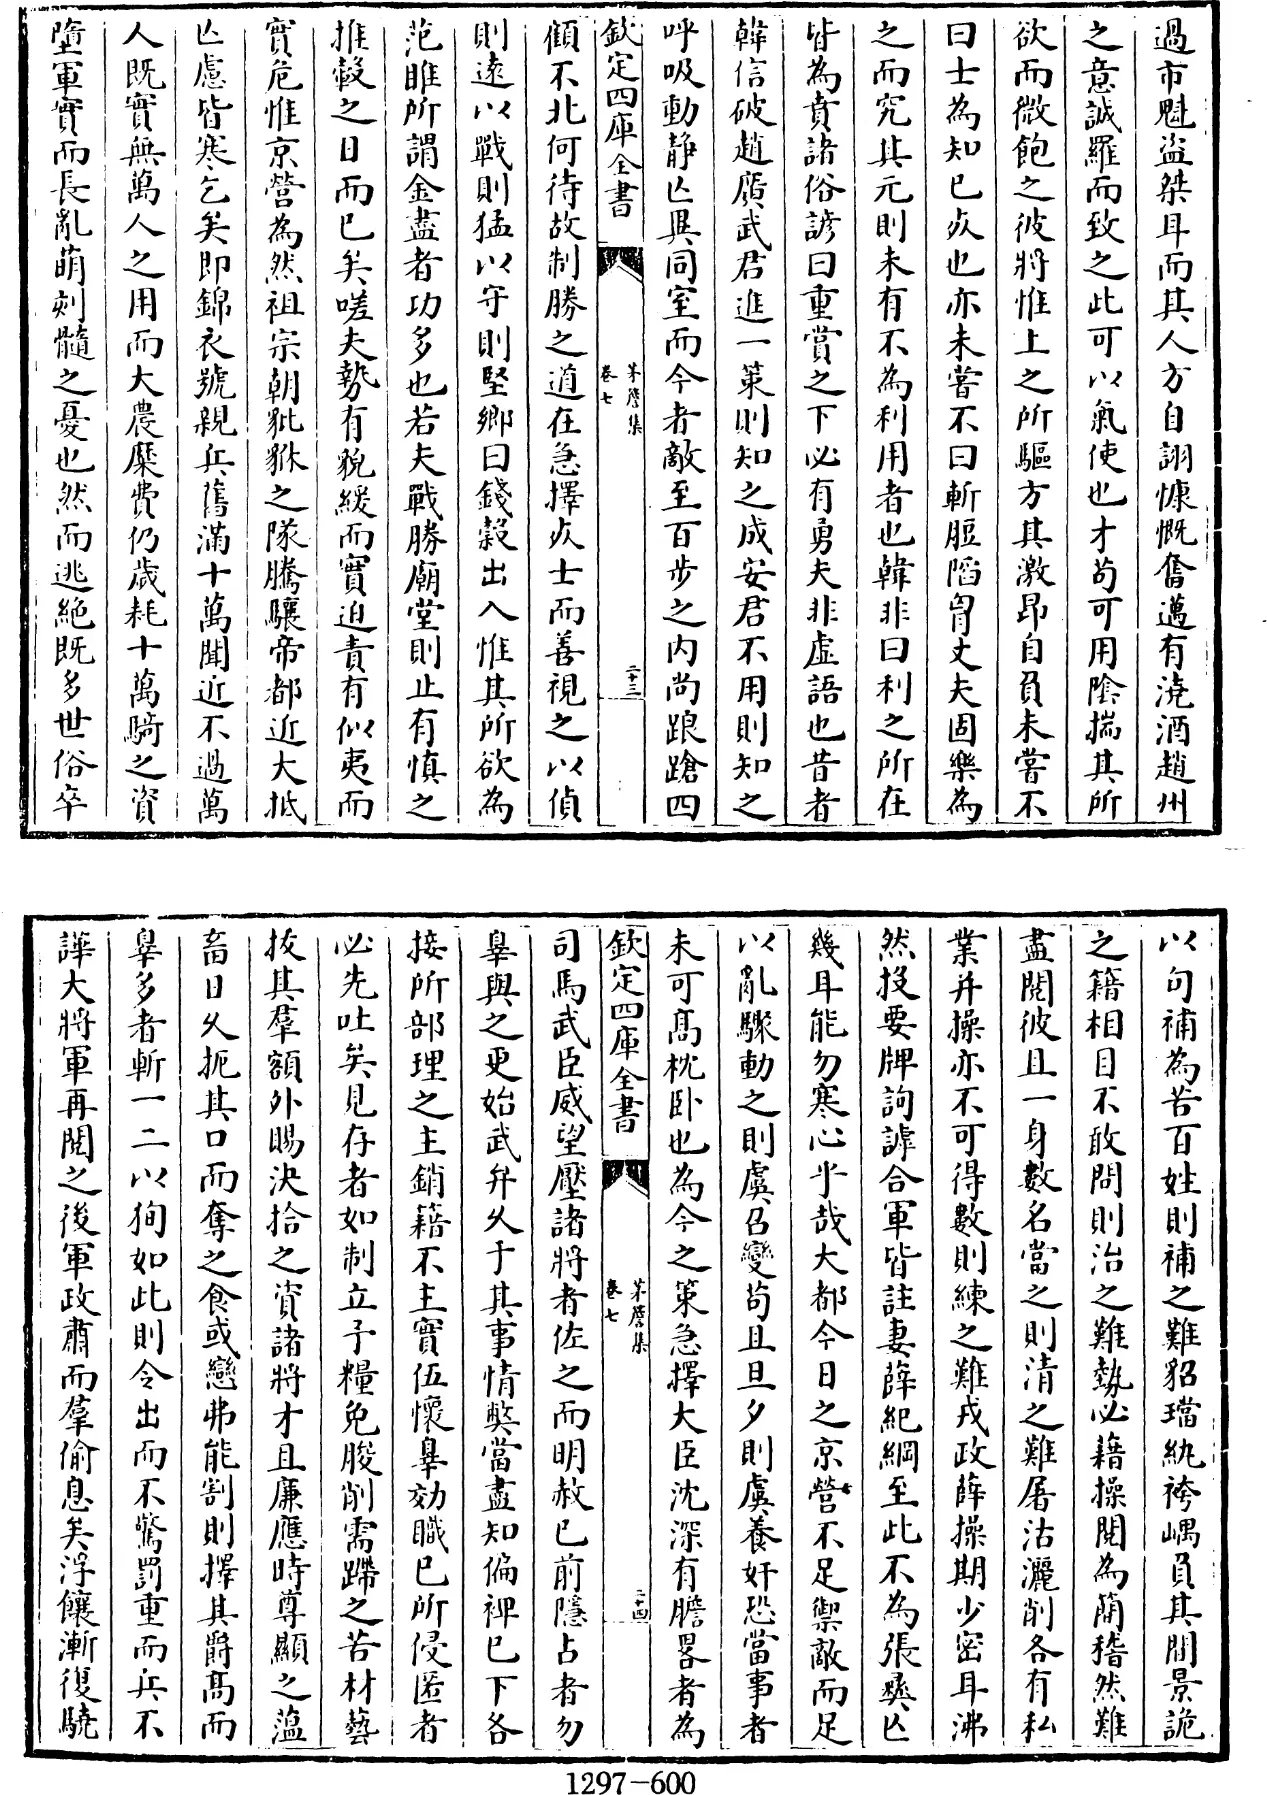 過市魁盜桀耳而其人方自詡慷慨奮邁有澆酒趙州
之意誠羅而致之此可以氣使也才茍可用陰揣其所
欲而微飽之彼將惟上之所驅方其激昂自負未嘗不
曰士為知己死也亦未嘗不曰斬脰陷胷丈夫固樂為
之而究其元則未有不為利用者也韓非曰利之所在
皆為賁諸俗諺曰重賞之下必有勇夫非虛語也昔者
韓信破趙廣武君進一策則知之成安君不用則知之
呼吸動靜亡異同室而今者敵至百步之內尚踉蹌四
欽定四庫全書
茅簷集
卷七
二十三
顧不北何待故制勝之道在急擇死士而善視之以偵
則遠以戰則猛以守則堅鄉曰錢穀出入惟其所欲為
范睢所謂金盡者功多也若夫戰勝廟堂則止有慎之
推轂之日而已矣嗟夫勢有貌緩而實迫責有似夷而
實危惟京營為然祖宗朝豼貅之隊騰驤帝都近大抵
亡慮皆寒乞矣即錦衣號親兵舊滿十萬聞近不過萬
人既實無萬人之用而大農糜費仍歲耗十萬騎之資
墮軍實而長亂萌剡髓之憂也然而逃絕既多世俗卒
以句補為苦百姓則補之難貂璫紈袴嵎負其間景詭
之籍相目不敢問則治之難勢必藉操閱為蘭稽然難
盡閱彼且一身數名當之則清之難屠沽灑削各有私
業并操亦不可得數則練之難戎政薛操期少密耳沸
然投要牌詢謼合軍皆註妻薛紀綱至此不為張彝亡
幾耳能勿寒心乎哉大都今日之京營不足禦敵而足
以亂驟動之則虞召變茍且旦夕則虞養奸恐當事者
未可高枕臥也為今之策急擇大臣沈深有膽畧者為
欽定四庫全書
茅簷集
卷七
二十四
司馬武臣威望壓諸將者佐之而明赦已前隱占者勿
辠與之更始武弁久于其事情弊當盡知偏裨已下各
接所部理之主銷籍不主實伍懷辠効職已所侵匿者
必先吐矣見存者如制立予糧免朘削需蹛之苦材藝
拔其羣額外賜決拾之資諸將才且廉應時尊顯之薀
畜日久扼其口而奪之食或戀弗能割則擇其爵高而
辠多者斬一二以狥如此則令出而不驚罰重而兵不
譁大將軍再閱之後軍政肅而羣偷息矣浮饟漸復驍
1297-600